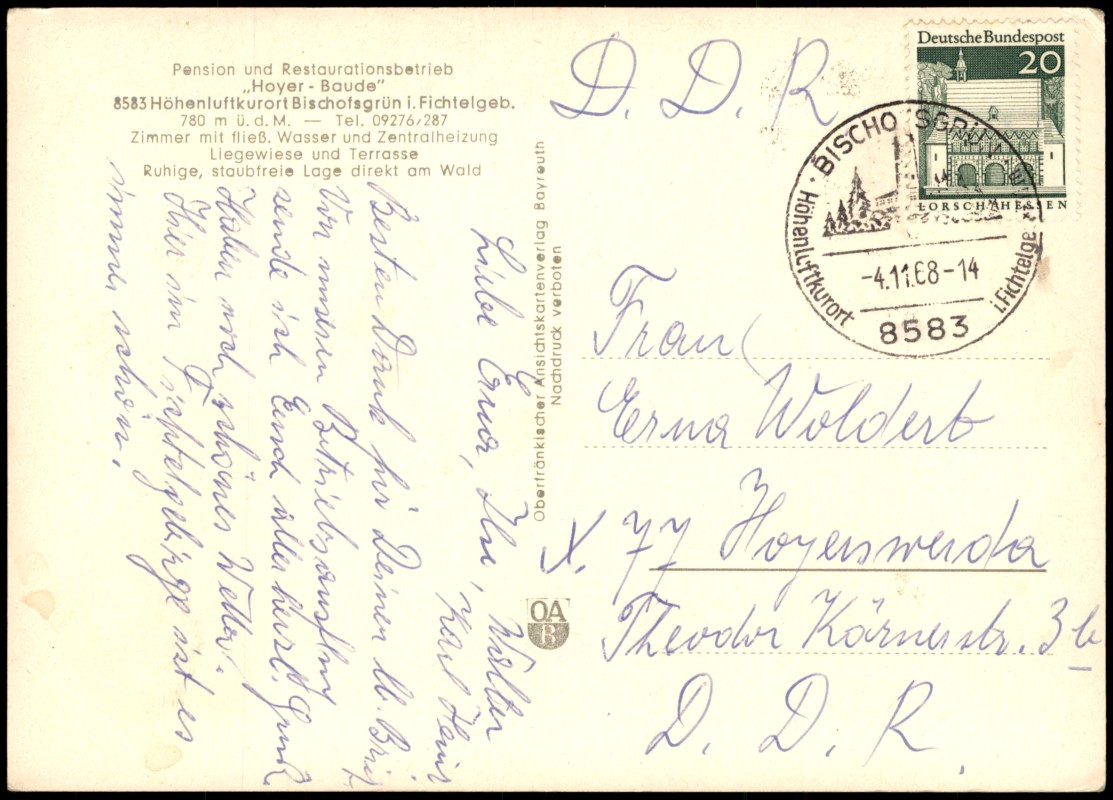 Pension und Restaurationsbetrieb
„Hoyer - Baude"
8583 Höhenluftkurort Bischofsgrün i. Fichtelgeb.
780 m ü. d. M. — Tel. 09276/287
Zimmer mit fließ. Wasser und Zentralheizung
Liegewiese und Terrasse
Ruhige, staubfreie Lage direkt am Wald
Liebe Erna, Ilse, Walter
Karl Heinz
Besten Dank für Deinen lb. Brief
Von unserem Betriebsausflug
sende ich Euch allen herzl. Gruß
Haben noch schönes Wetter.
Hier im Fichtelgebirge ist es
immer schön.
Oberfränkischer Ansichtskartenverlag Bayreuth
Nachdruck verboten
OA
B
D. D. R
Deutsche Bundespost
20
LORSCH/HESSEN
BISCHOFSGRÜN
Höhenluftkurort
i. Fichtelgeb.
-4.11.68-14
8583
Frau
Erna Woldert
X. 77 Hoyerswerda
Theodor Körnerstr. 3b
D. D. R.